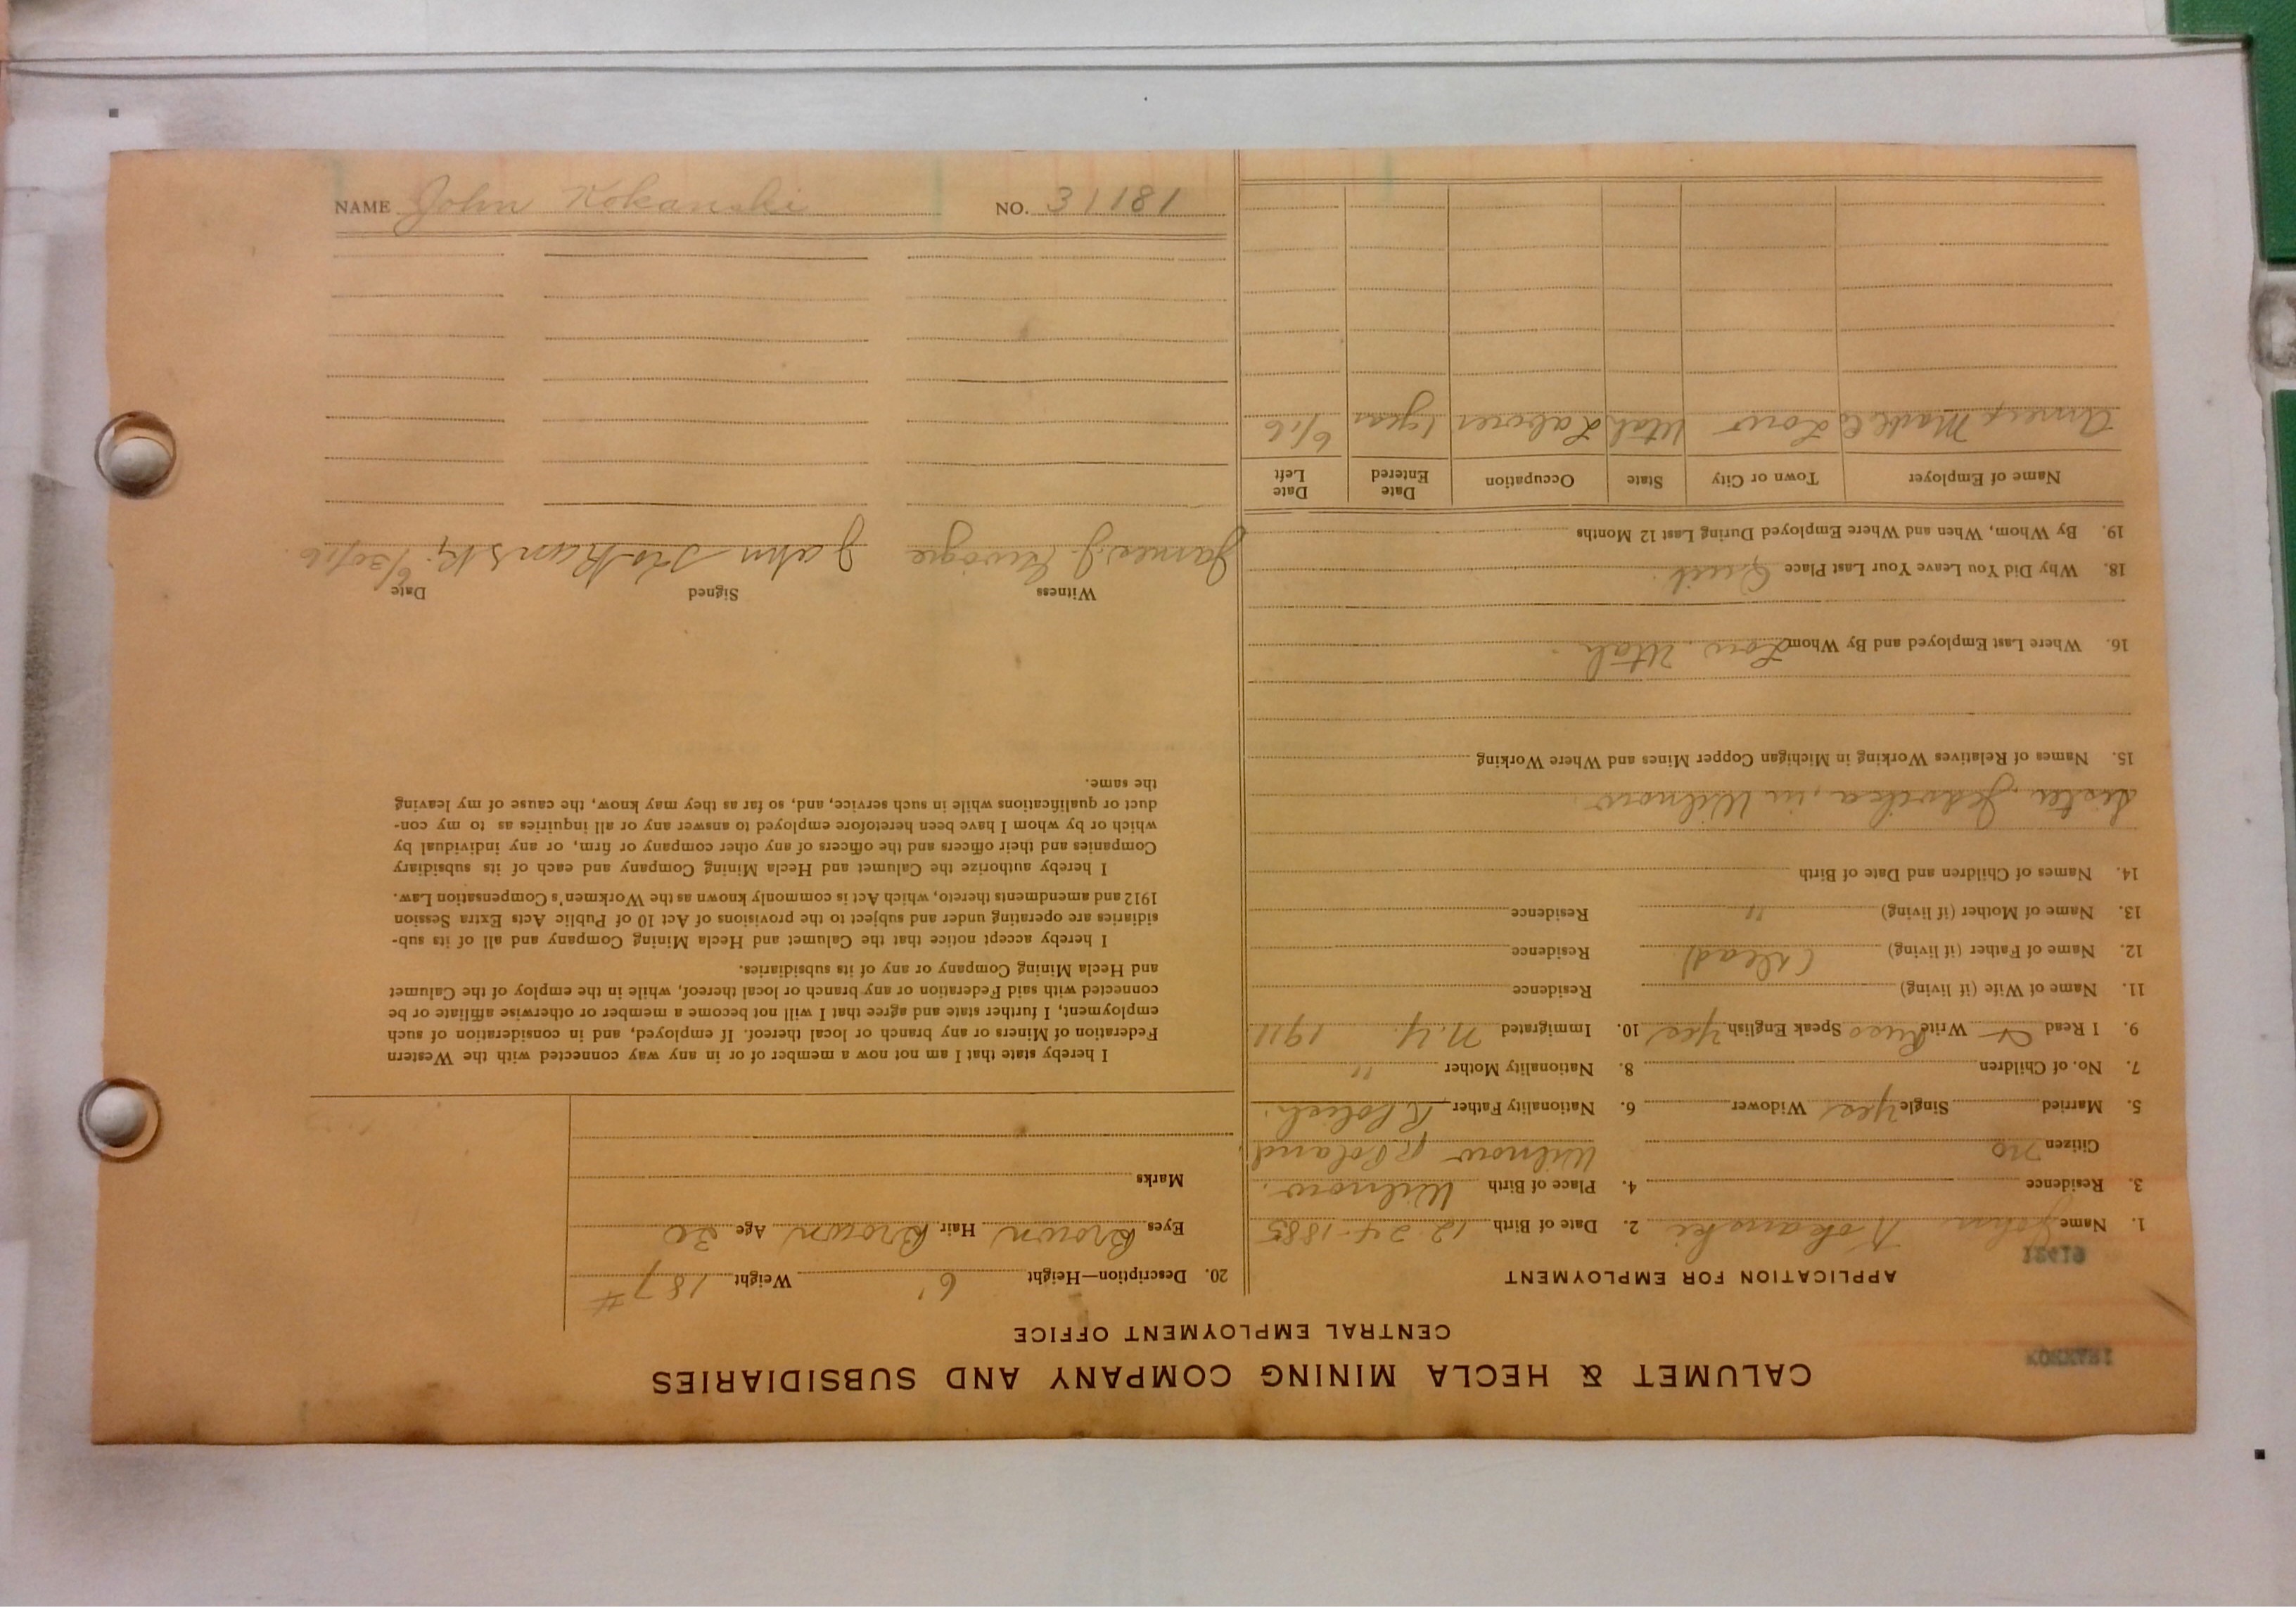 CALUMET & HECLA MINING COMPANY AND SUBSIDIARIES
CENTRAL EMPLOYMENT OFFICE
APPLICATION FOR EMPLOYMENT
1. Name John Kokanski 2. Date of Birth 12-24-1885
3. Residence 4. Place of Birth Wilnow.
Citizen no Wilnow Poland.
5. Married Single Yes Widower 6. Nationality Father R. Polish.
7. No. of Children 8. Nationality Mother "
9. I Read & Write Russ Speak English Yes 10. Immigrated N.Y. 1911
11. Name of Wife (if living) Residence
12. Name of Father (if living) (dead) Residence
13. Name of Mother (if living) " Residence
14. Names of Children and Date of Birth
Sister, in Wilnow
15. Names of Relatives Working in Michigan Copper Mines and Where Working
16. Where Last Employed and By Whom Utah
18. Why Did You Leave Your Last Place Quit.
19. By Whom, When and Where Employed During Last 12 Months
Name of Employer Town or City State Occupation Date Entered Date Left
Utah Laborer 1 year 6/16
20. Description—Height 6' Weight 187 #
Eyes Brown Hair Brown Age 30
Marks
I hereby state that I am not now a member of or in any way connected with the Western
Federation of Miners or any branch or local thereof. If employed, and in consideration of such
employment, I further state and agree that I will not become a member or otherwise affiliate or be
connected with said Federation or any branch or local thereof, while in the employ of the Calumet
and Hecla Mining Company or any of its subsidiaries.
I hereby accept notice that the Calumet and Hecla Mining Company and all of its sub-
sidiaries are operating under and subject to the provisions of Act 10 of Public Acts Extra Session
1912 and amendments thereto, which Act is commonly known as the Workmen's Compensation Law.
I hereby authorize the Calumet and Hecla Mining Company and each of its subsidiary
Companies and their officers and the officers of any other company or firm, or any individual by
which or by whom I have been heretofore employed to answer any or all inquiries as to my con-
duct or qualifications while in such service, and, so far as they may know, the cause of my leaving
the same.
Witness Signed Date
James J. John 6/30/16.
NAME John Kokanski NO. 31181